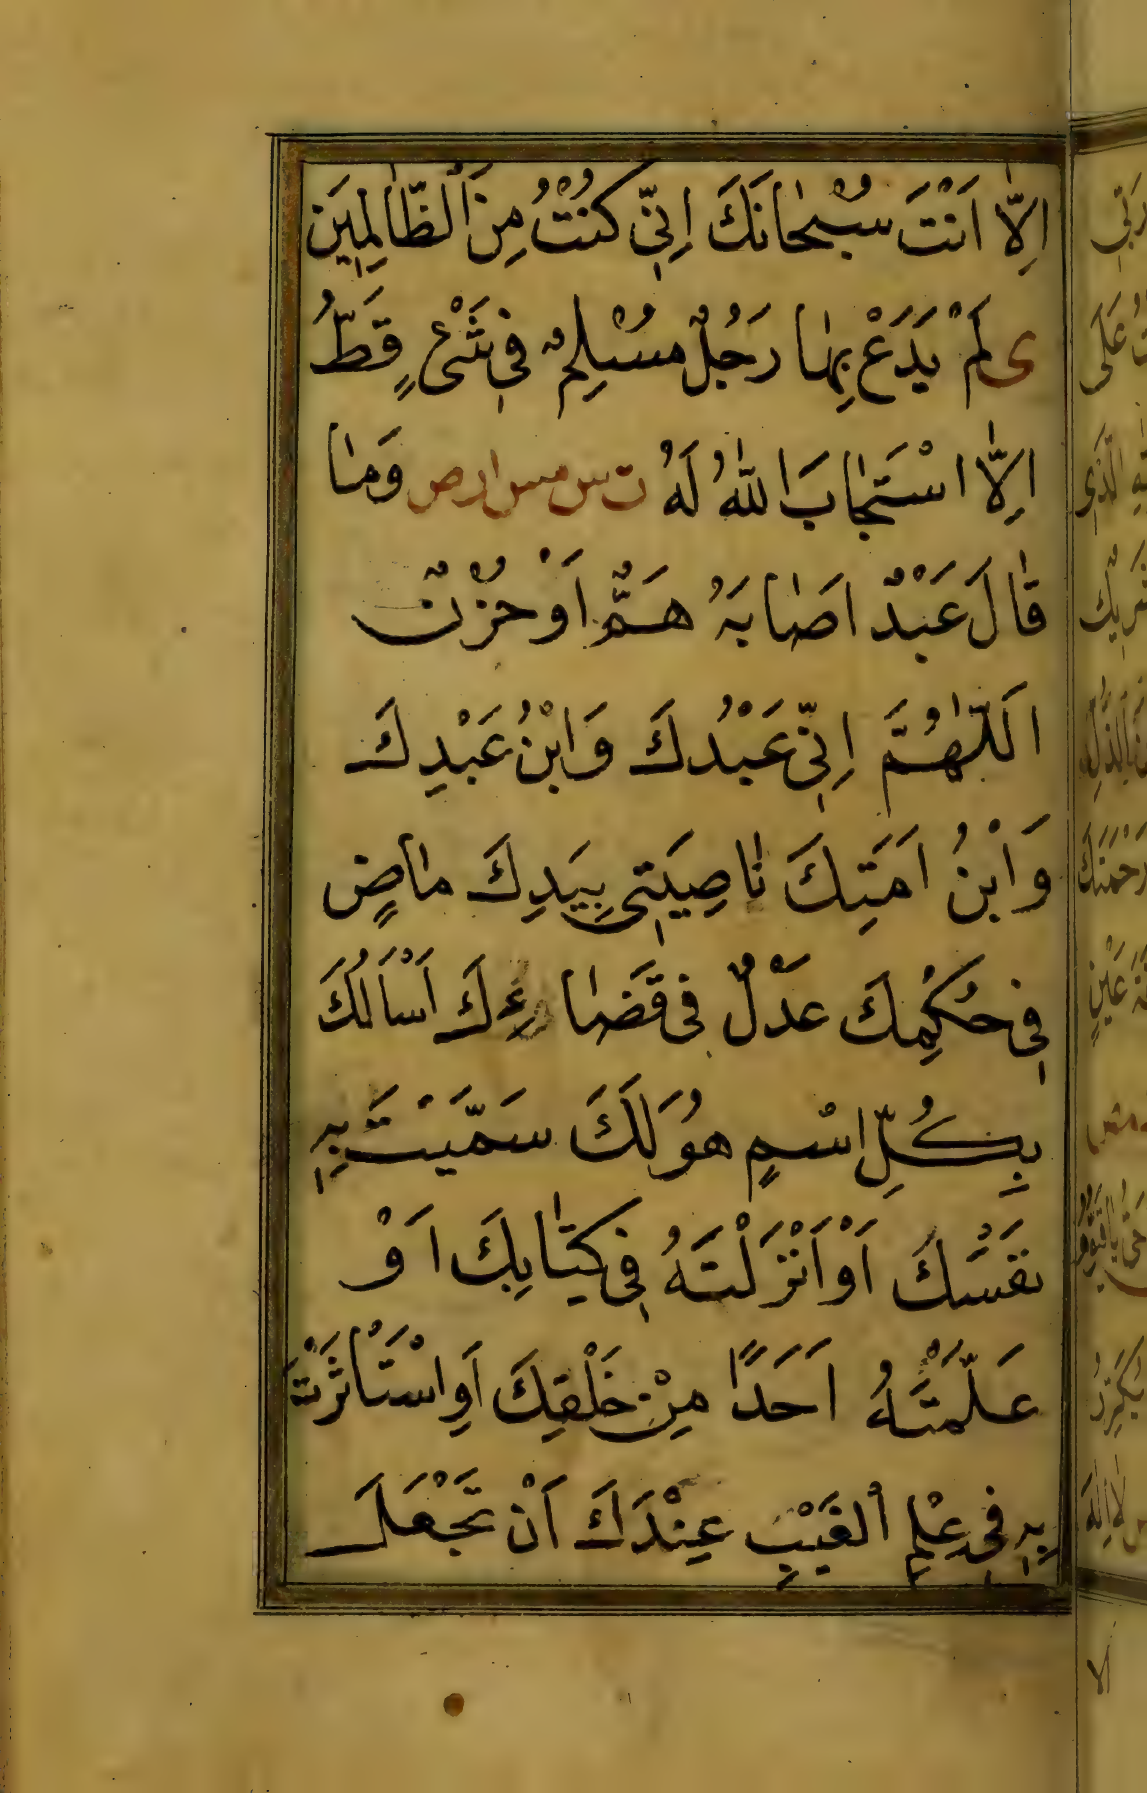 اِلاّٰ اَنْتَ سُبْحٰانَكَ اِنِّي كُنْتُ مِنَ الظّٰالِمِينَ
ى لَمْ يَدَعْ بِهٰا رَجُلٌ مُسْلِمٌ فِي شَيْءٍ قَطُّ
اِلاّٰ اسْتَجٰابَ اللّٰهُ لَهُ ت س مس ا ر ص وَمٰا
قٰالَ عَبْدٌ اَصٰابَهُ هَمٌّ اَوْ حُزْنٌ
اَللّٰهُمَّ اِنِّي عَبْدُكَ وَابْنُ عَبْدِكَ
وَابْنُ اَمَتِكَ نٰاصِيَتِي بِيَدِكَ مٰاضٍ
فِي حُكْمِكَ عَدْلٌ فِي قَضٰاءِكَ اَسْاَلُكَ
بِكُلِّ اسْمٍ هُوَ لَكَ سَمَّيْتَ بِهِ
نَفْسَكَ اَوْ اَنْزَلْتَهُ فِي كِتٰابِكَ اَوْ
عَلَّمْتَهُ اَحَدًا مِنْ خَلْقِكَ اَوِ اسْتَأْثَرْتَ
بِهِ فِي عِلْمِ الْغَيْبِ عِنْدَكَ اَنْ تَجْعَلَ